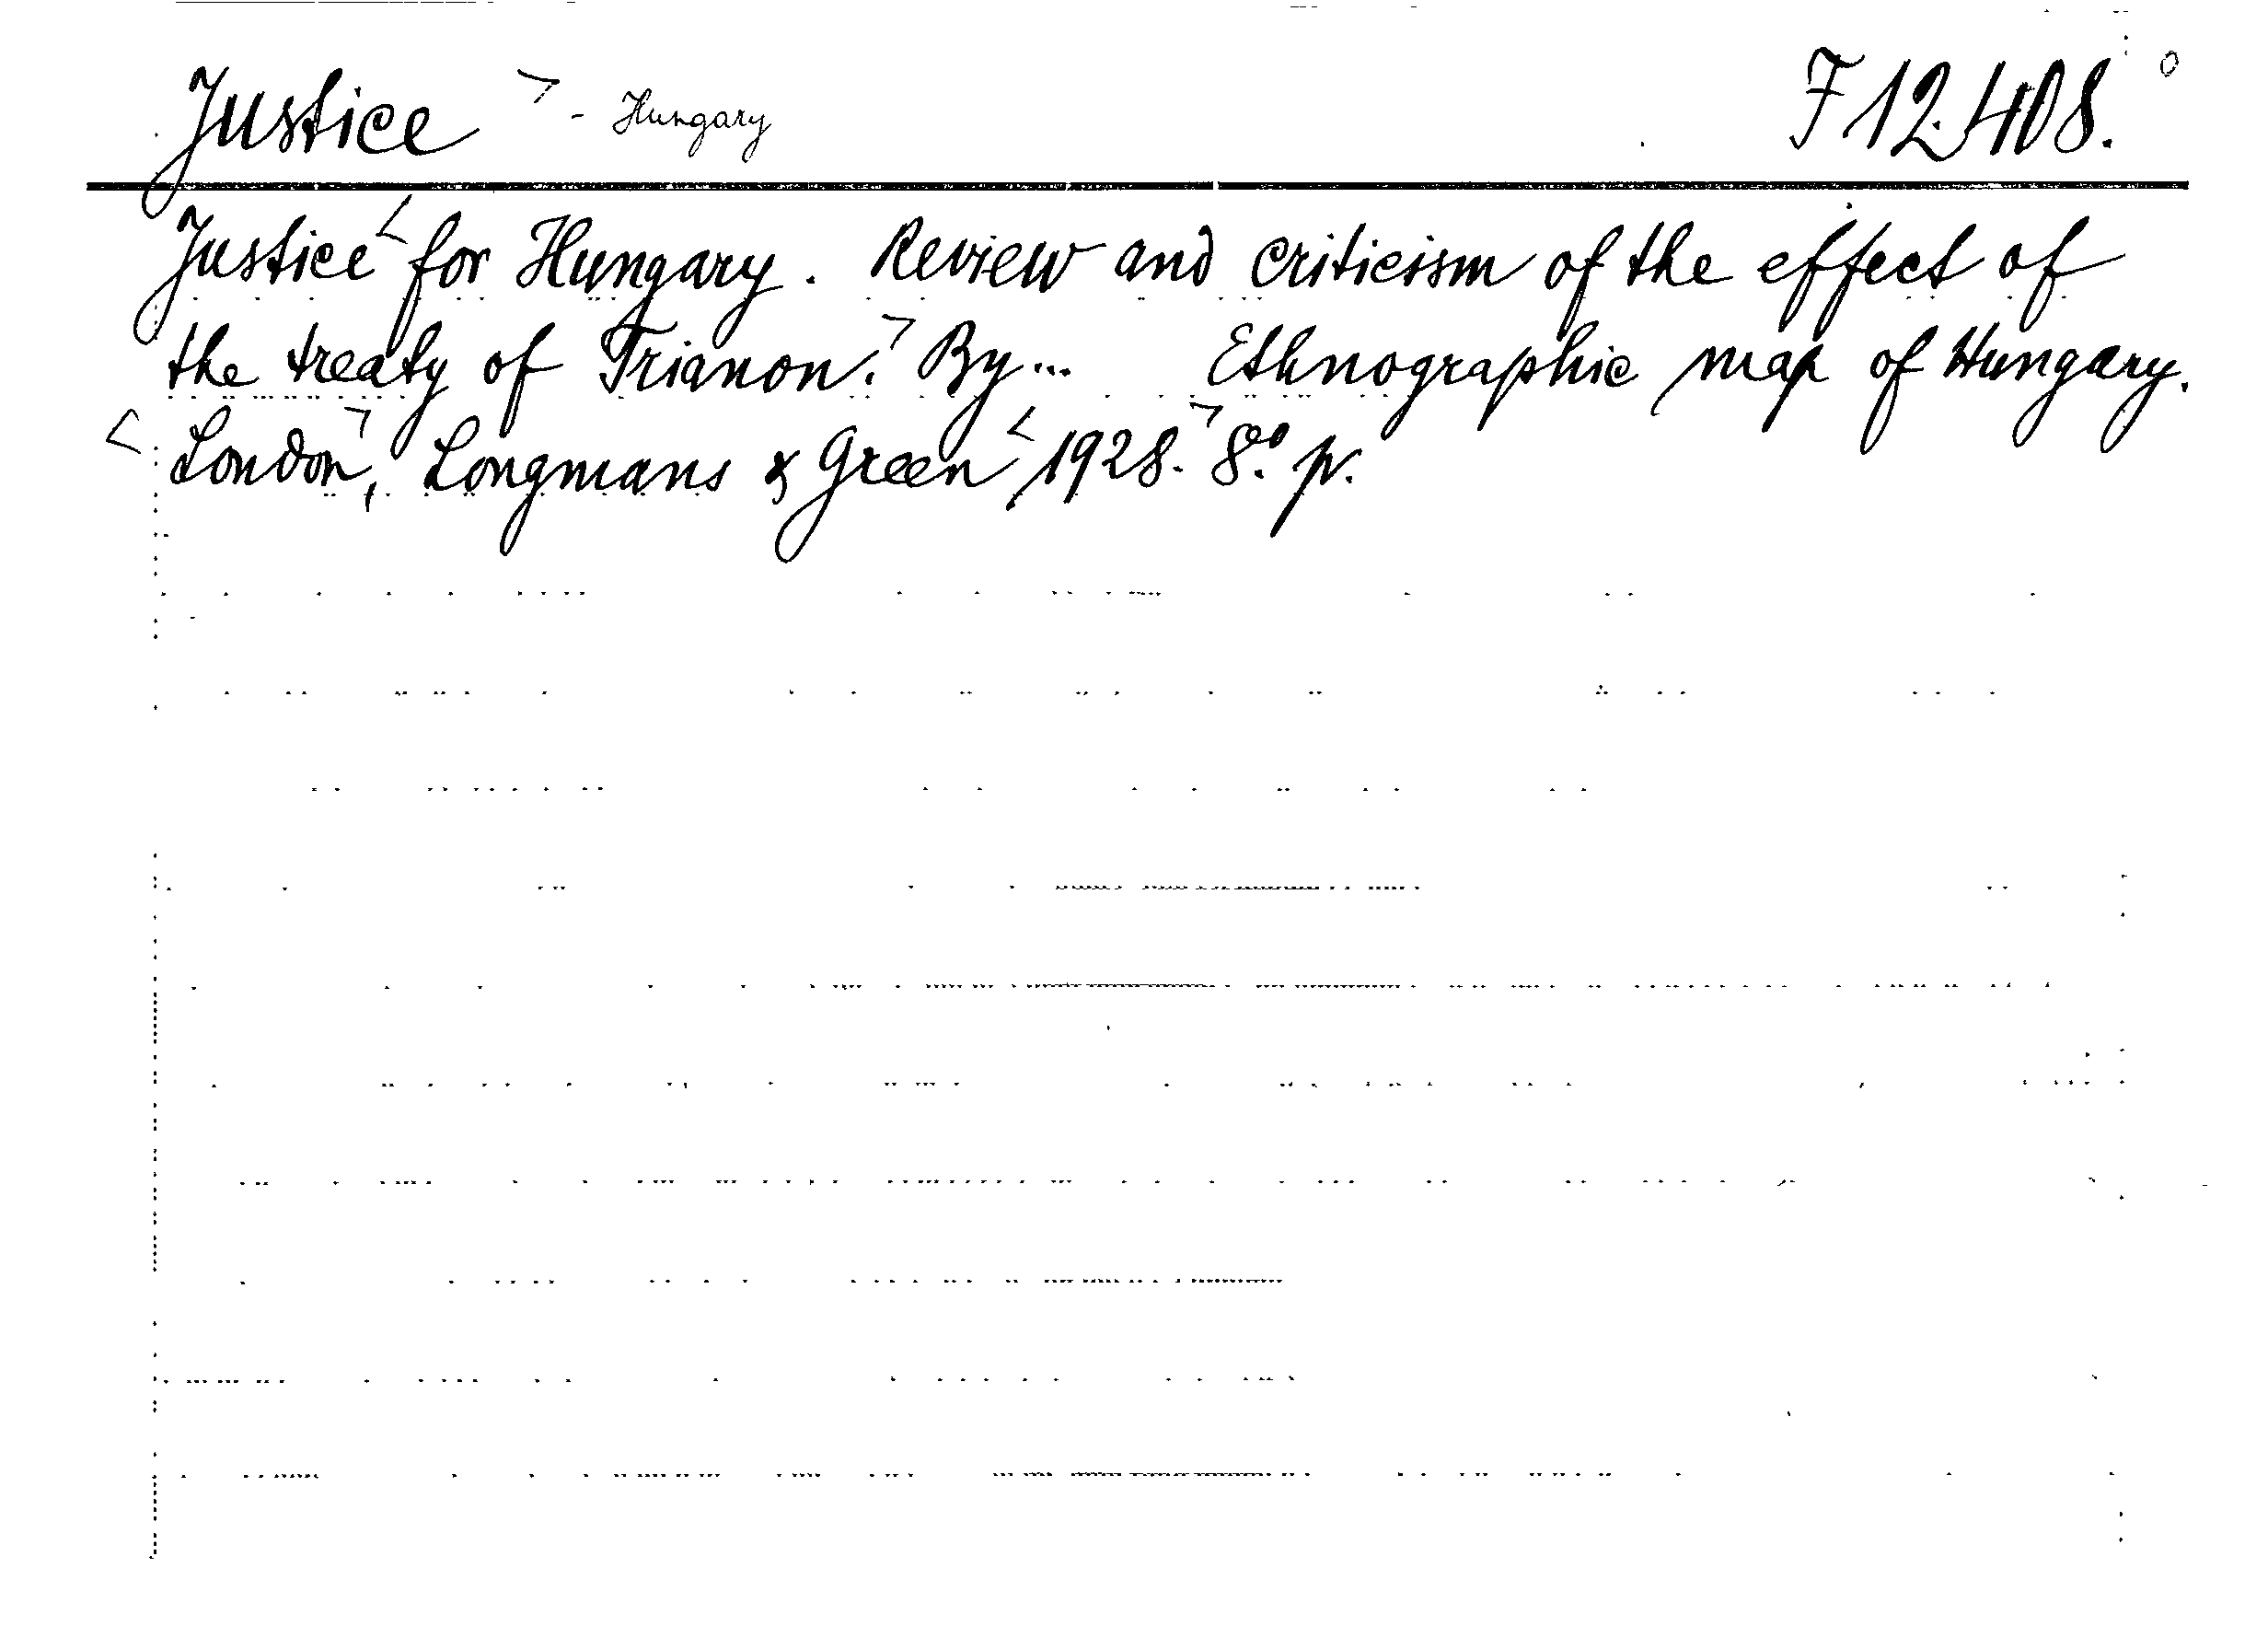 Justice - Hungary F 12.408.
Justice for Hungary. Review and criticism of the effect of
the treaty of Trianon. By... Ethnographic map of Hungary.
London, Longmans & Green 1928. 8.° p.